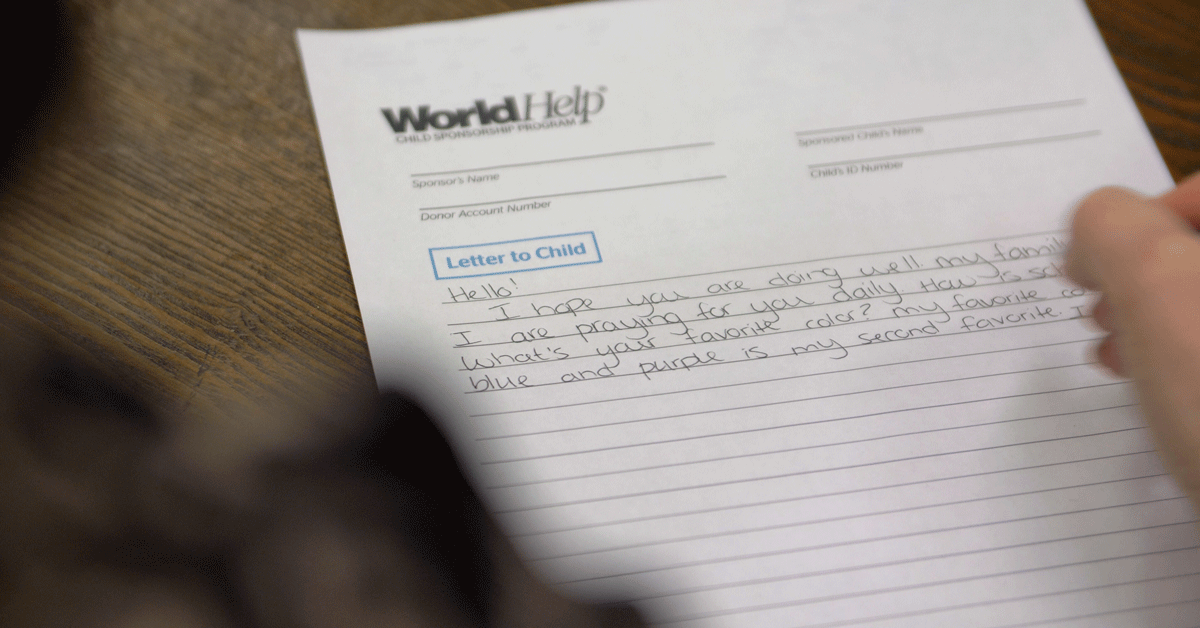 WorldHelp®
CHILD SPONSORSHIP PROGRAM
Sponsor's Name
Donor Account Number
Sponsored Child's Name
Child's ID Number
Letter to Child
Hello!
I hope you are doing well. my
I are praying for you daily. How is
What's your favorite color? my favorite
blue and purple is my second favorite. I